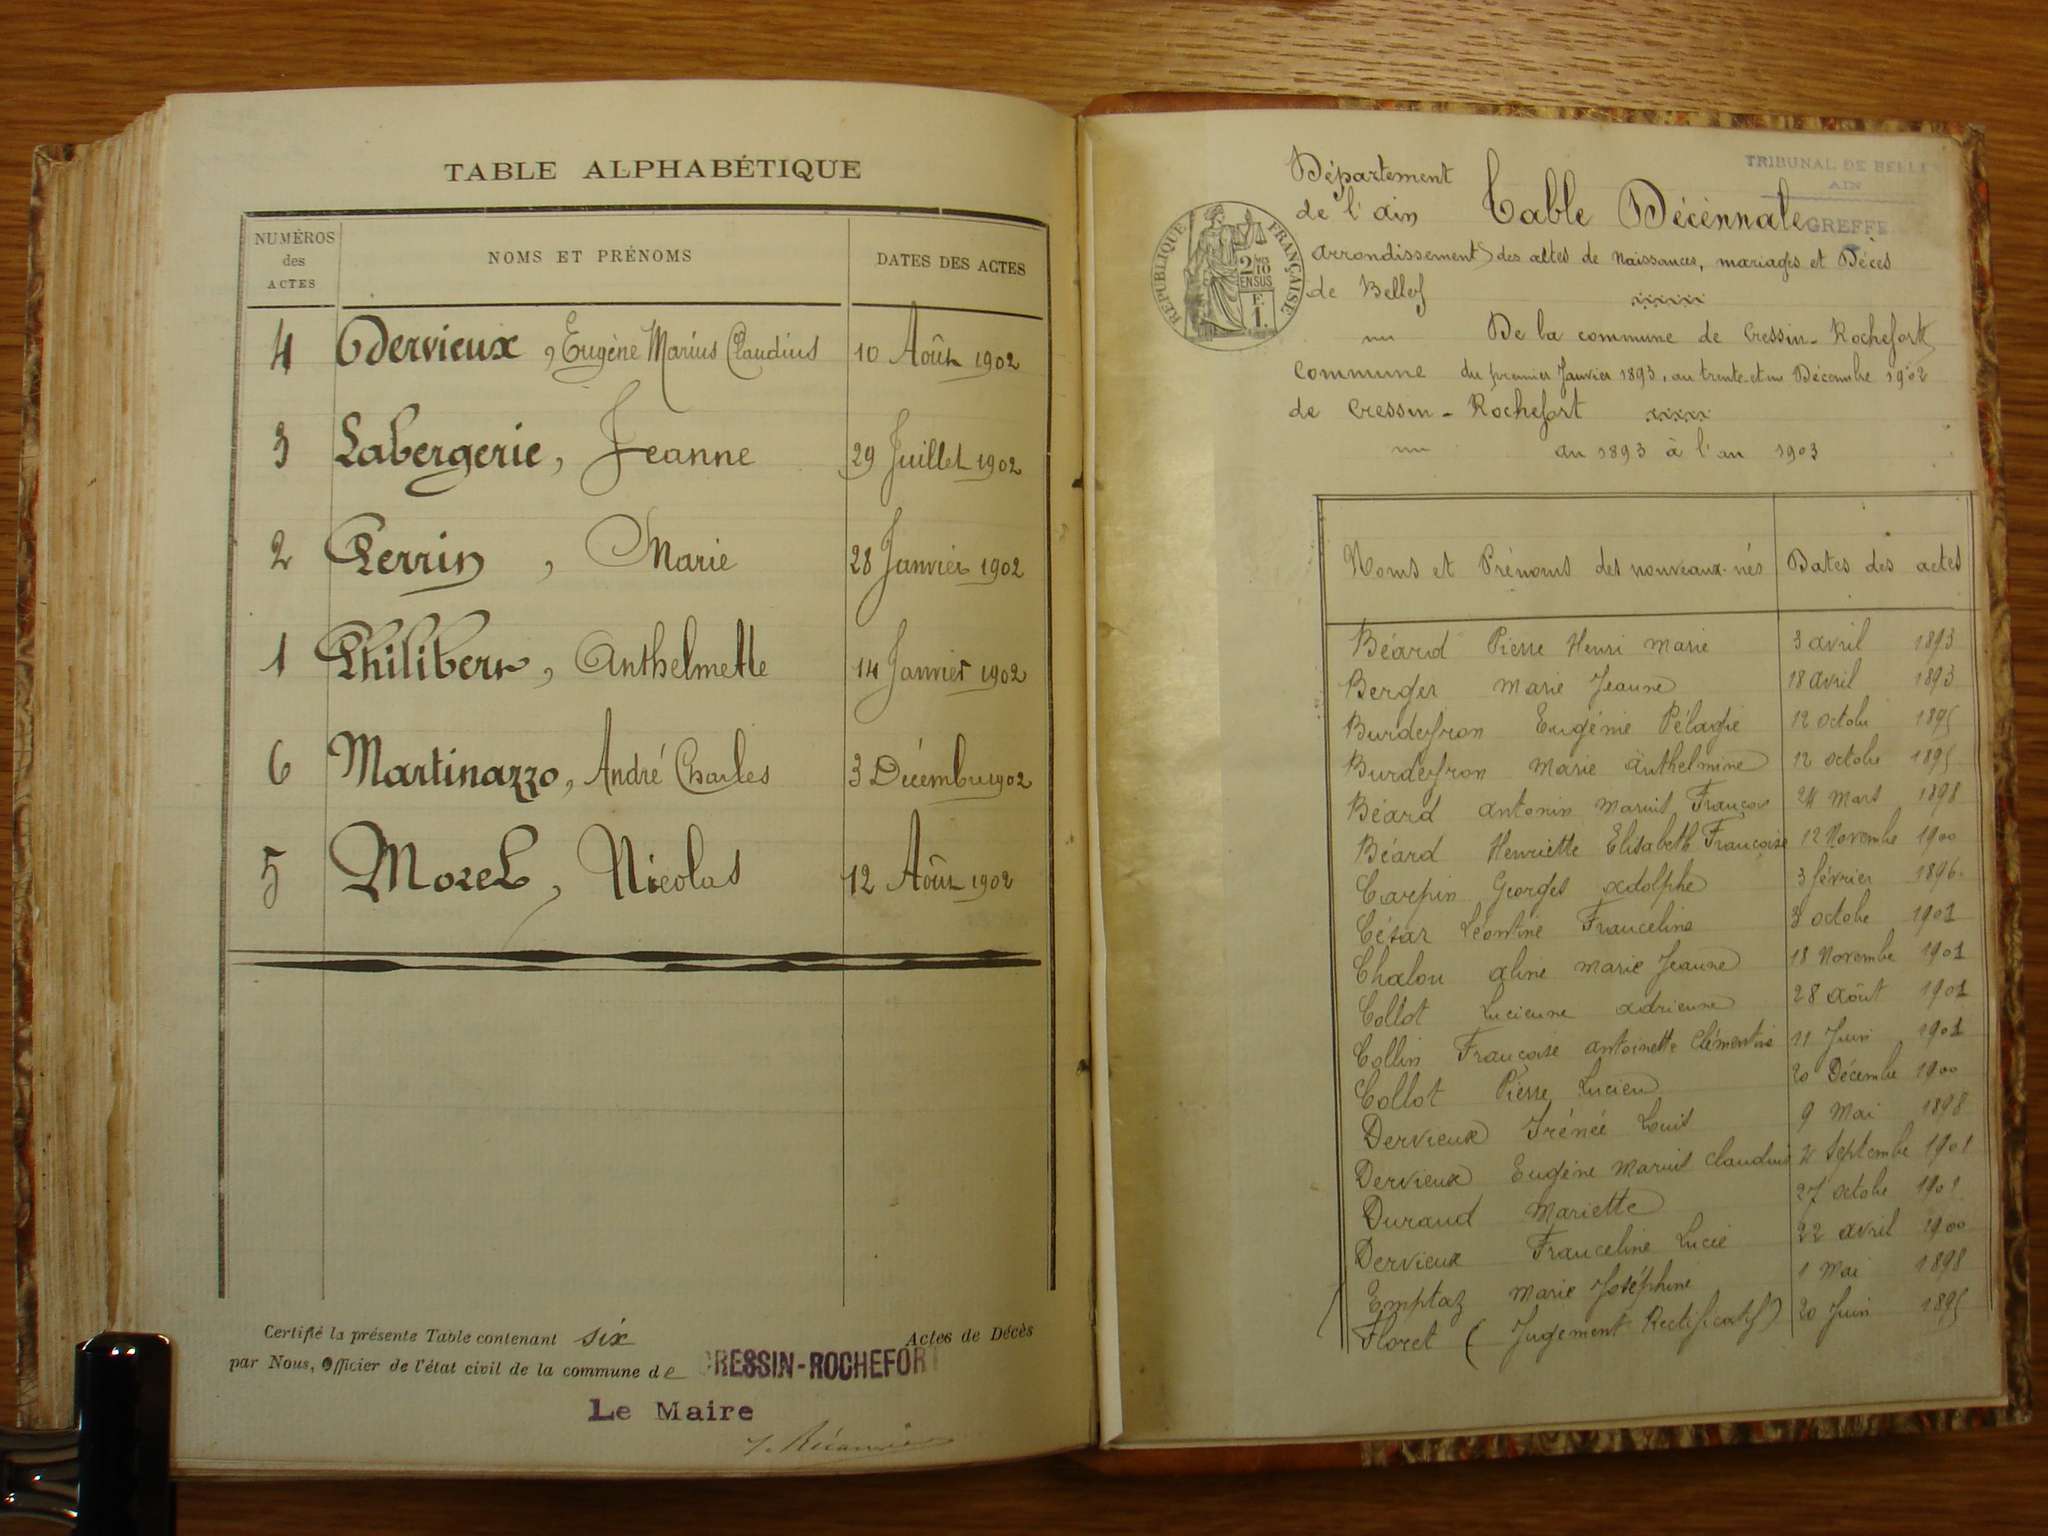 TABLE ALPHABÉTIQUE
NUMÉROS des ACTES NOMS ET PRÉNOMS DATES DES ACTES
4 Dervieux, Eugène Marius Claudius 10 Août 1902
3 Labergerie, Jeanne 29 Juillet 1902
2 Perrin, Marie 28 Janvier 1902
1 Philibert, Anthelmette 14 Janvier 1902
6 Martinazzo, André Charles 3 Décembre 1902
5 Morel, Nicolas 12 Août 1902
Certifié la présente Table contenant six Actes de Décès
par Nous, Officier de l'état civil de la commune de CRESSIN-ROCHEFORT
Le Maire
TRIBUNAL DE BELLEY
AIN
GREFFE
RÉPUBLIQUE FRANÇAISE
2/10 EN SUS
F.
1.
Département
de l'ain Table Décennale
arrondissement des actes de Naissances, mariages et Décès
de Belley
De la commune de Cressin-Rochefort
Commune du premier Janvier 1893, au trente-et-un Décembre 1902
de Cressin-Rochefort
an 1893 à l'an 1903
Noms et Prénoms des nouveaux-nés Dates des actes
Béard Pierre Henri Marie 3 avril 1893
Berger Marie Jeanne 18 avril 1893
Burdeyron Eugénie Pélagie 12 octobre 1895
Burdeyron Marie Anthelmine 12 octobre 1895
Béard Antonin Marius François 24 Mars 1898
Béard Henriette Elisabeth Françoise 12 Novembre 1900
Carpin Georges Adolphe 3 février 1896
César Léontine Franceline 3 octobre 1901
Chalou Aline Marie Jeanne 18 Novembre 1901
Collot Lucienne Adrienne 28 août 1901
Collin Françoise Antoinette Clémentine 11 Juin 1901
Collot Pierre Lucien 20 Décembre 1900
Dervieux Irénée Louis 9 Mai 1898
Dervieux Eugène Marius Claudius 2 Septembre 1901
Durand Mariette 27 octobre 1901
Dervieux Franceline Lucie 22 avril 1900
Emptaz Marie Joséphine 1 Mai 1898
Floret (Jugement Rectificatif) 20 Juin 1895